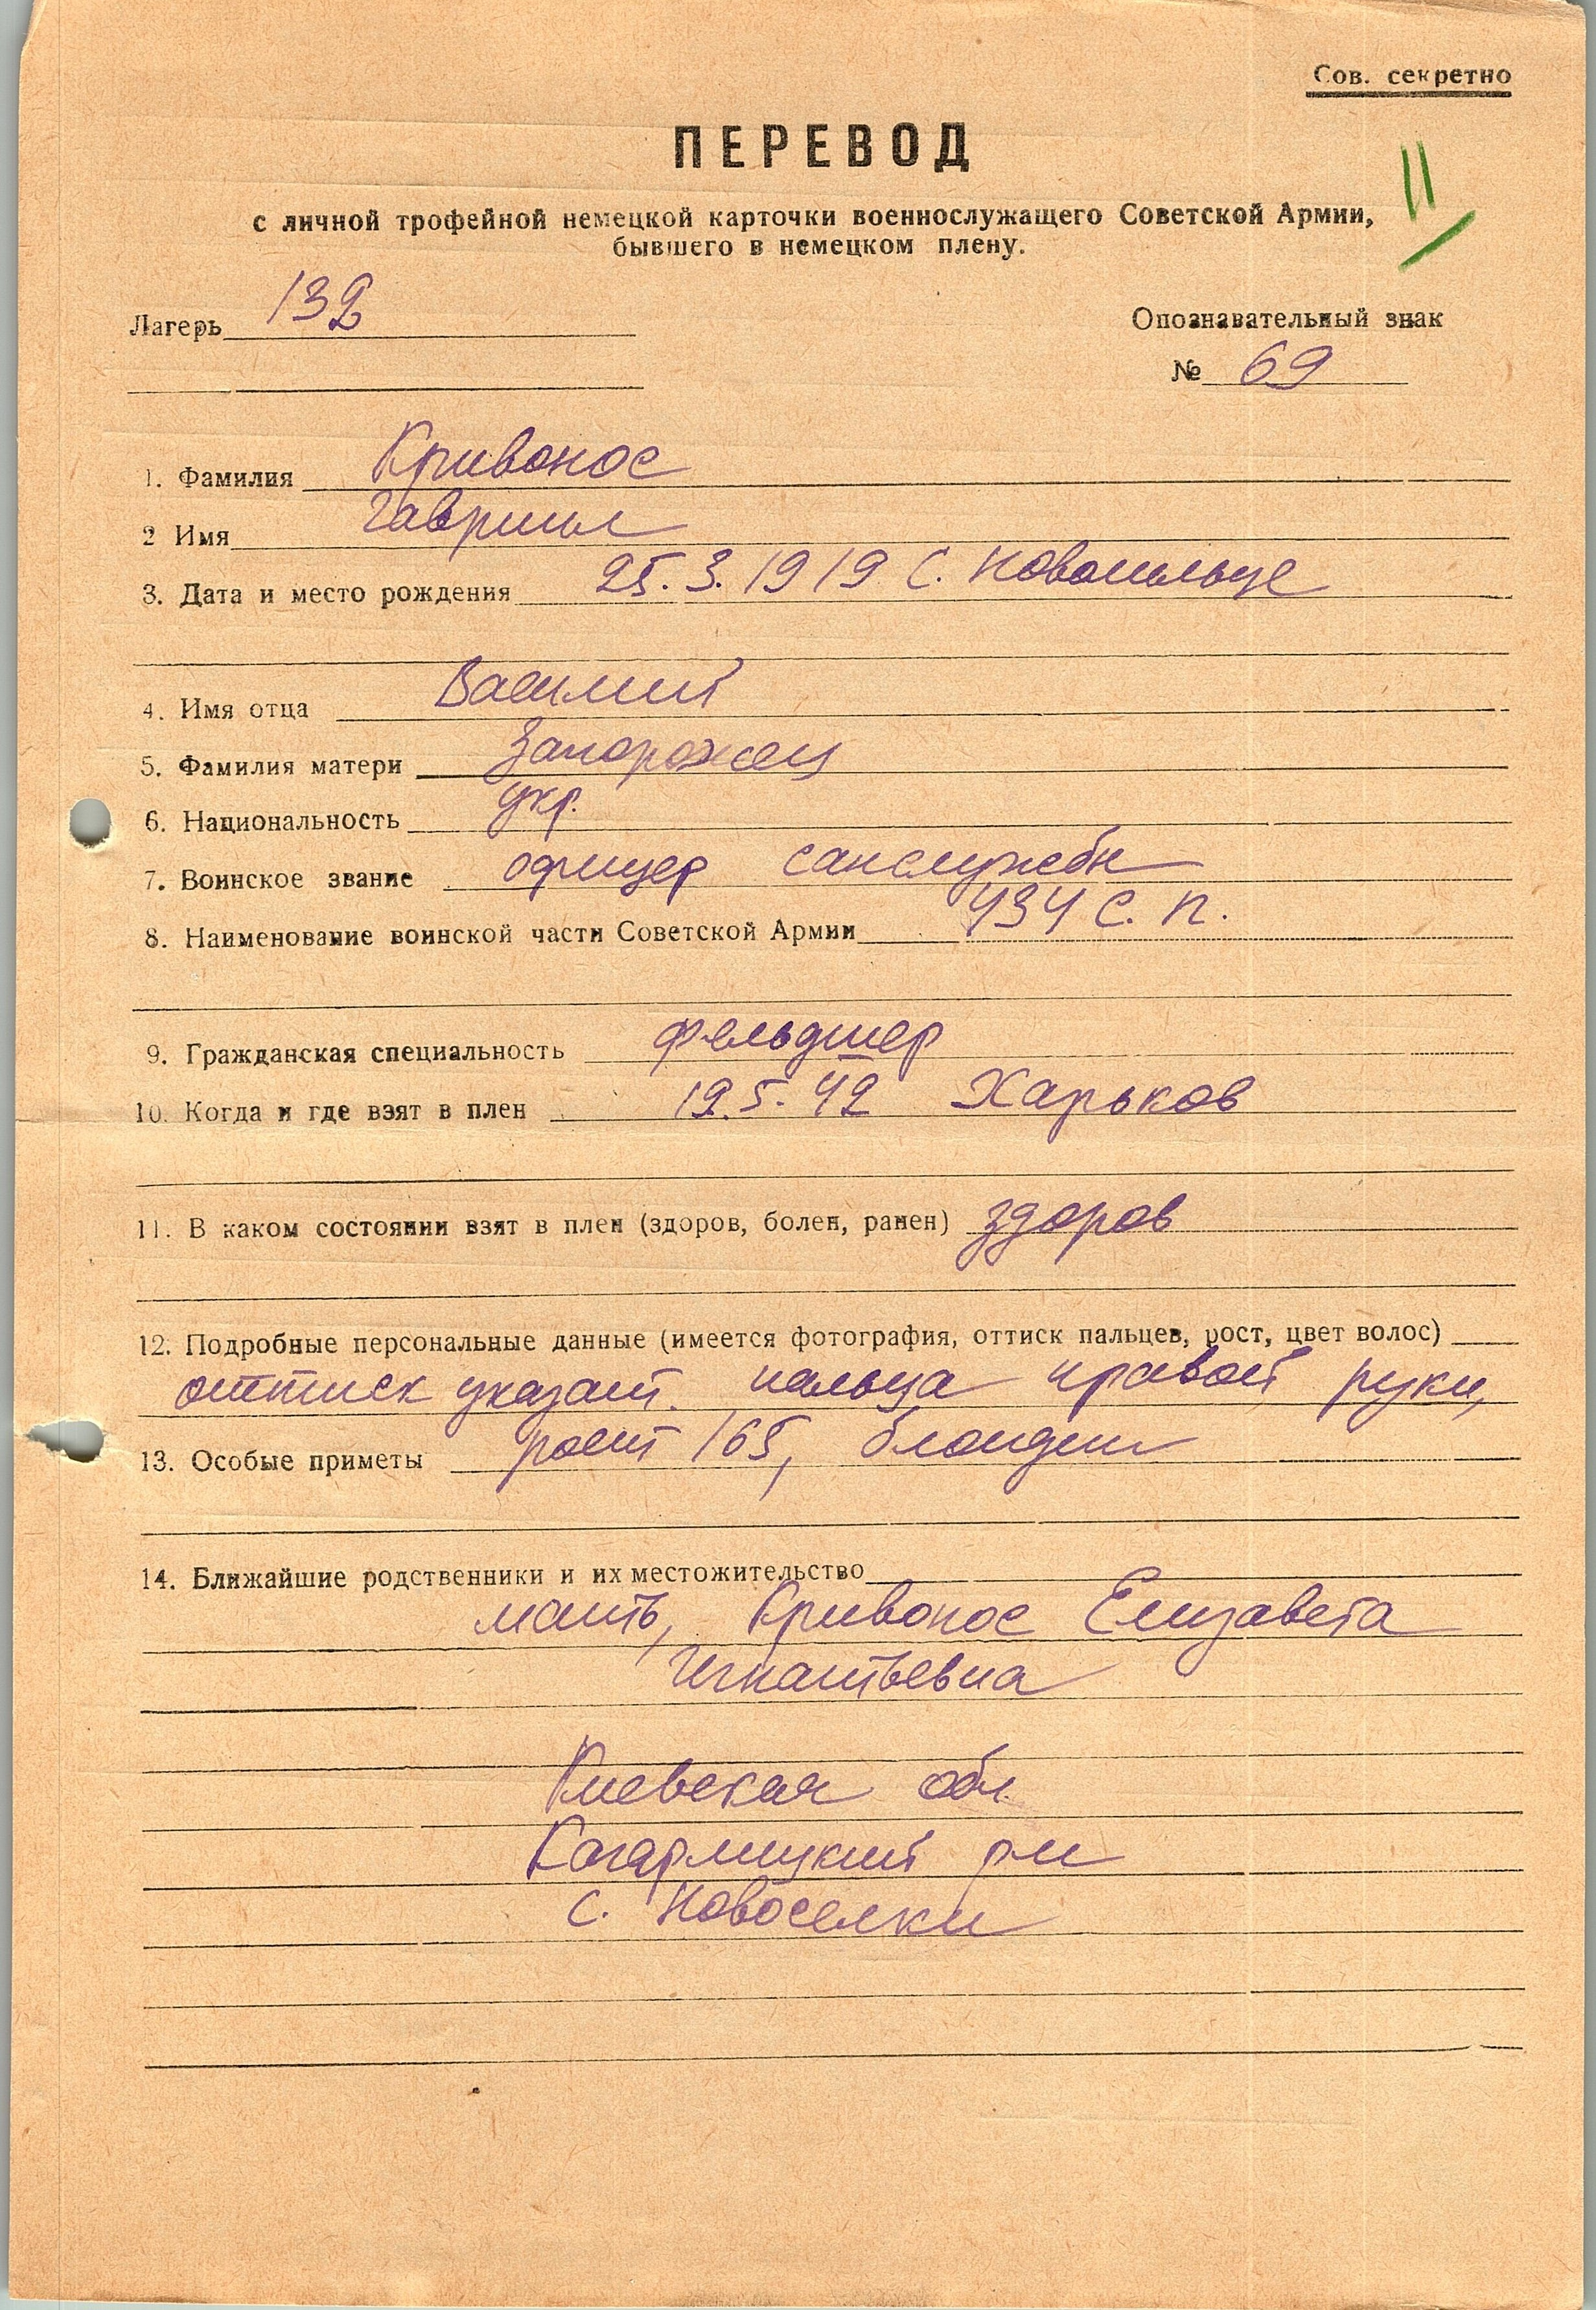 Сов. секретно
ПЕРЕВОД
11
с личной трофейной немецкой карточки военнослужащего Советской Армии,
бывшего в немецком плену.
Лагерь 132
Опознавательный знак
№ 69
1. Фамилия Кривонос
2 Имя Гавриил
3. Дата и место рождения 25.3.1919 с.
4. Имя отца Василий
5. Фамилия матери Запорожец
6. Национальность укр.
7. Воинское звание офицер санслужбы
8. Наименование воинской части Советской Армии 434 с. п.
9. Гражданская специальность фельдшер
10. Когда и где взят в плен 19.5.42 Харьков
11. В каком состоянии взят в плен (здоров, болен, ранен) здоров
12. Подробные персональные данные (имеется фотография, оттиск пальцев, рост, цвет волос)
оттиск указат. пальца правой руки,
13. Особые приметы рост 165, блондин
14. Ближайшие родственники и их местожительство
мать, Кривонос Елизавета
Игнатьевна
Киевская обл.
Кагарлицкий р-н
с. Новоселки